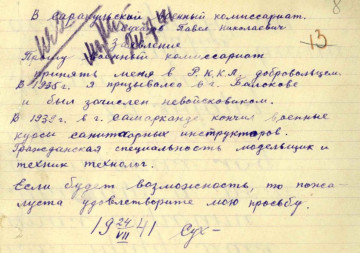 8
В Сарапульский военный комиссариат.
Сухов Павел Николаевич
13
Заявление
Прошу военный комиссариат
принять меня в Р.К.К.А. добровольцем.
В 1935 г я призывался в г. Балакове
и был зачислен невойсковиком.
В 1939 г в г. Самарканде кончил военные
курсы санитарных инструкторов.
Гражданская специальность модельщик и
техник технолог.
Если будет возможность, то пожа-
луста удовлетворите мою просьбу.
19 24/VII 41 Сух-